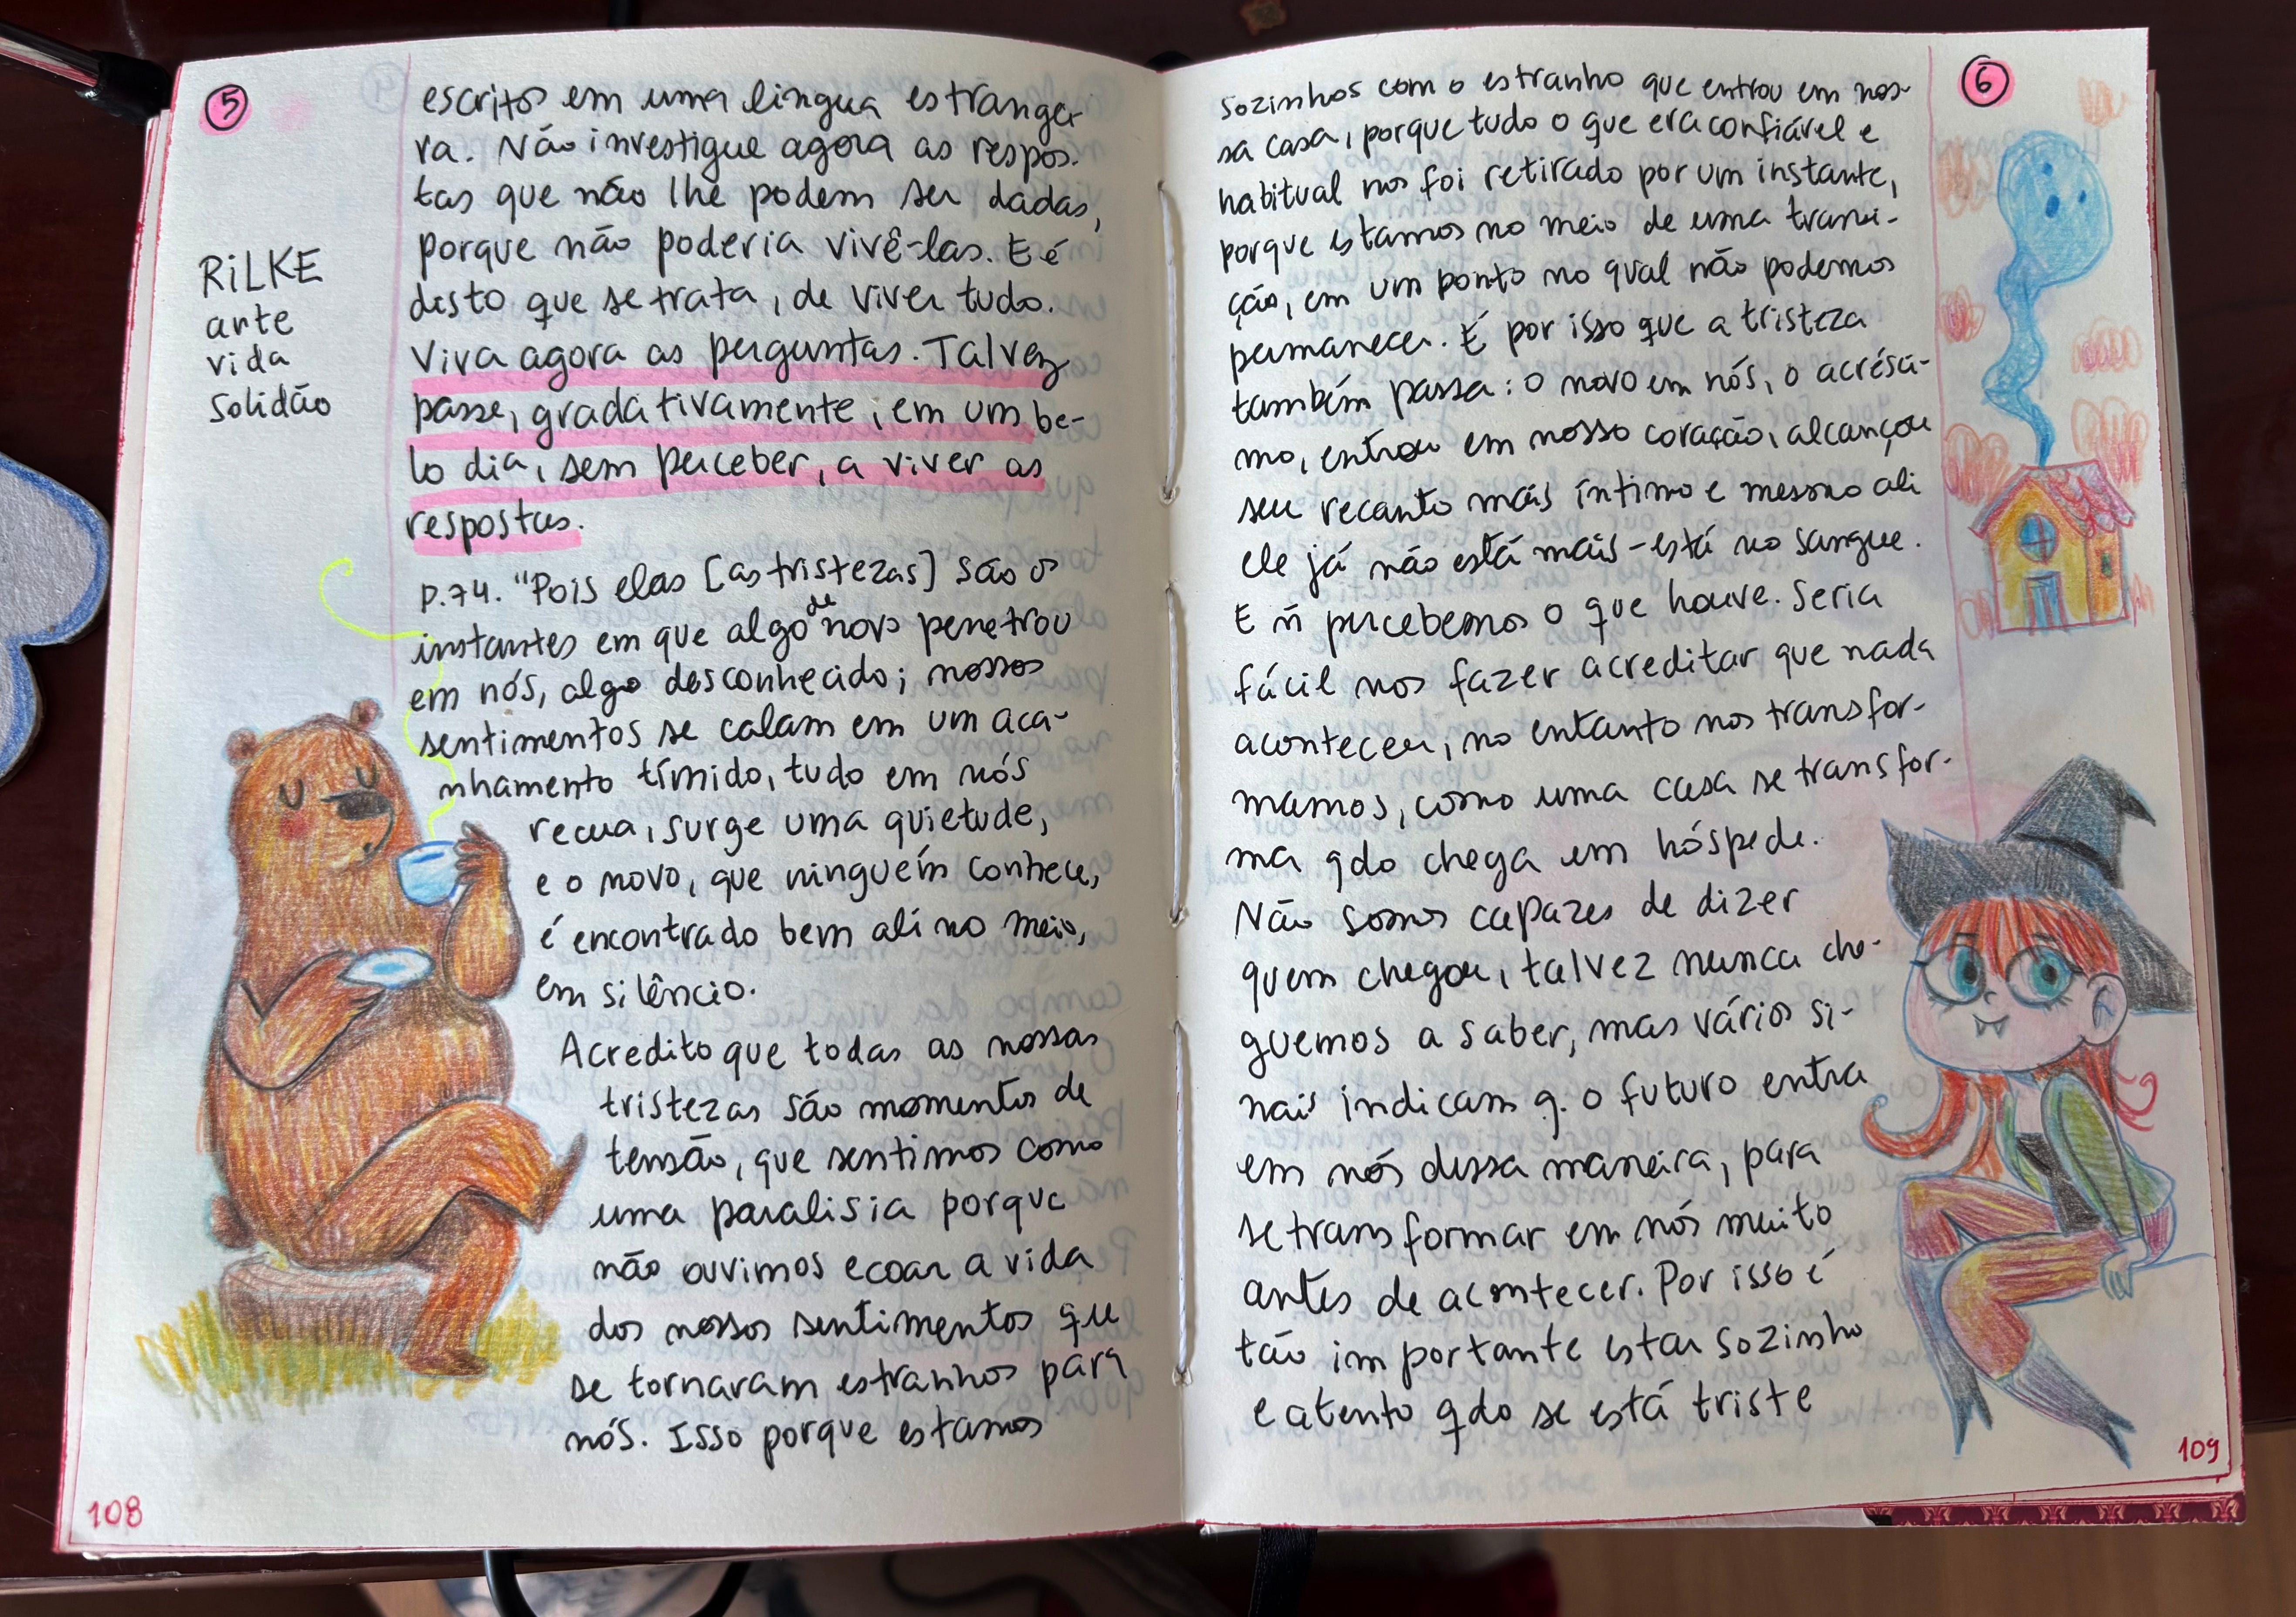 5
RiLKE
arte
vida
solidão
escritos em uma língua estrangei-
ra. Não investigue agora as respos-
tas que não lhe podem ser dadas,
porque não poderia vivê-las. E é
disto que se trata, de viver tudo.
Viva agora as perguntas. Talvez
passe, gradativamente, em um be-
lo dia, sem perceber, a viver as
respostas.
p.74. "Pois elas [as tristezas] são os
instantes em que algo de novo penetrou
em nós, algo desconhecido; nossos
sentimentos se calam em um aca-
nhamento tímido, tudo em nós
recua, surge uma quietude,
e o novo, que ninguém conhece,
é encontrado bem ali no meio,
em silêncio.
Acredito que todas as nossas
tristezas são momentos de
tensão, que sentimos como
uma paralisia porque
não ouvimos ecoar a vida
dos nossos sentimentos que
se tornaram estranhos para
nós. Isso porque estamos
108
6
sozinhos com o estranho que entrou em nos-
sa casa, porque tudo o que era confiável e
habitual nos foi retirado por um instante,
porque estamos no meio de uma transi-
ção, em um ponto no qual não podemos
permanecer. É por isso que a tristeza
também passa: o novo em nós, o acrésci-
mo, entrou em nosso coração, alcançou
seu recanto mais íntimo e mesmo ali
ele já não está mais - está no sangue.
E ñ percebemos o que houve. Seria
fácil nos fazer acreditar que nada
aconteceu, no entanto nos transfor-
mamos, como uma casa se transfor-
ma qdo chega um hóspede.
Não somos capazes de dizer
quem chegou, talvez nunca che-
guemos a saber, mas vários si-
nais indicam q. o futuro entra
em nós dessa maneira, para
se transformar em nós muito
antes de acontecer. Por isso é
tão importante estar sozinho
e atento qdo se está triste
109